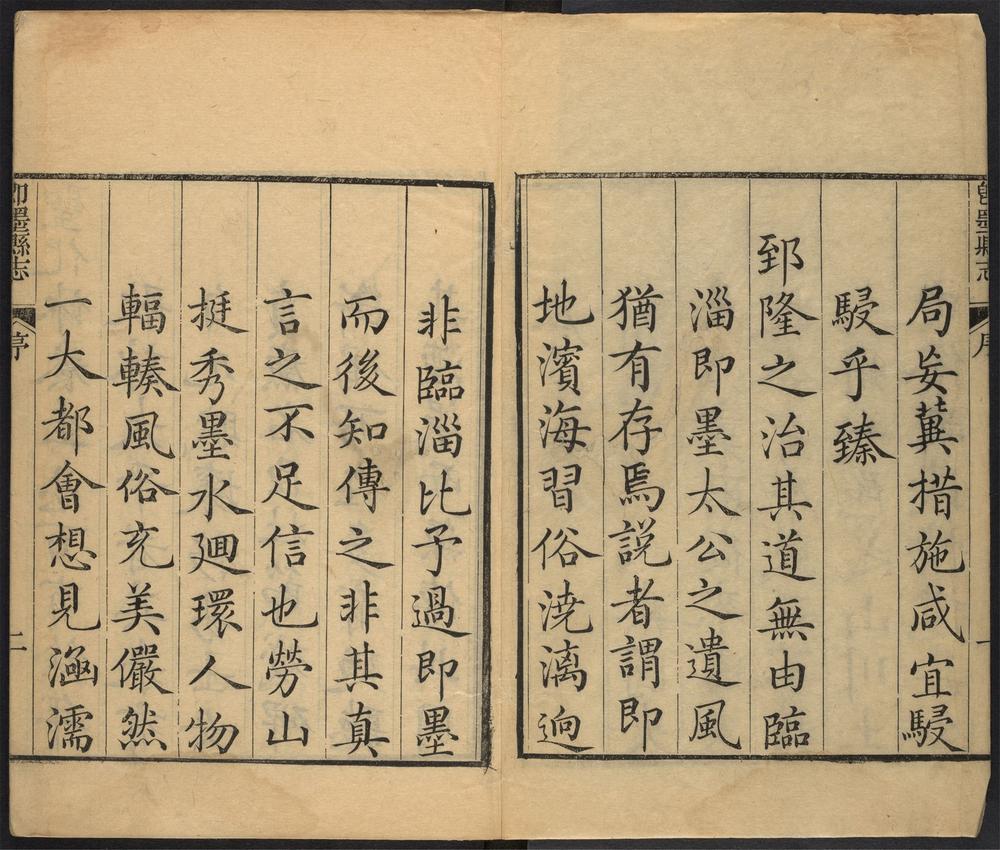 即墨縣志
序
一
局妄冀措施咸宜駸
駸乎臻
郅隆之治其道無由臨
淄即墨太公之遺風
猶有存焉說者謂即
地濱海習俗澆漓逈
非臨淄比予過即墨
而後知傳之非其真
言之不足信也勞山
挺秀墨水廻環人物
輻輳風俗充美儼然
一大都會想見涵濡
即墨縣志
序
二